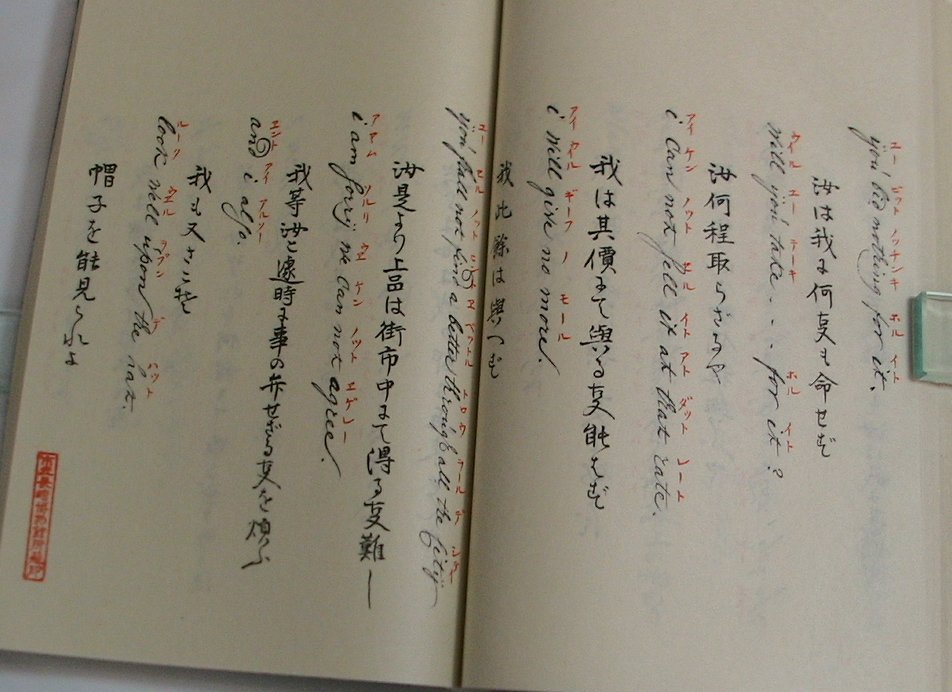 ユー ビット ノッチンキ ホル イト
you bid nothing for it.
汝は我に何事も命せず
ウイル ユー テーキ ホル イト
will you take . . . for it?
汝何程取らだるや
アイ ケン ノウト セル イト アト ダット レート
i can not sell it at that rate.
我は其價にて與る事能はず
アイ ウイル ギーフ ノ モール
i will give no more.
我此餘は與へず
you shall not find a better through all the city
汝是より上品は街市中にて得る事難し
アイ アム ソルリ ウエ ケン ノット エゲレー
i am sorry we can not agree.
我等汝と遽時に事の弁せざる事を煩ふ
エント アイ アルソー
and i also.
我も又
ルーク ウエル ヲプン デ ハット
look well upon the hat.
帽子を能見られよ